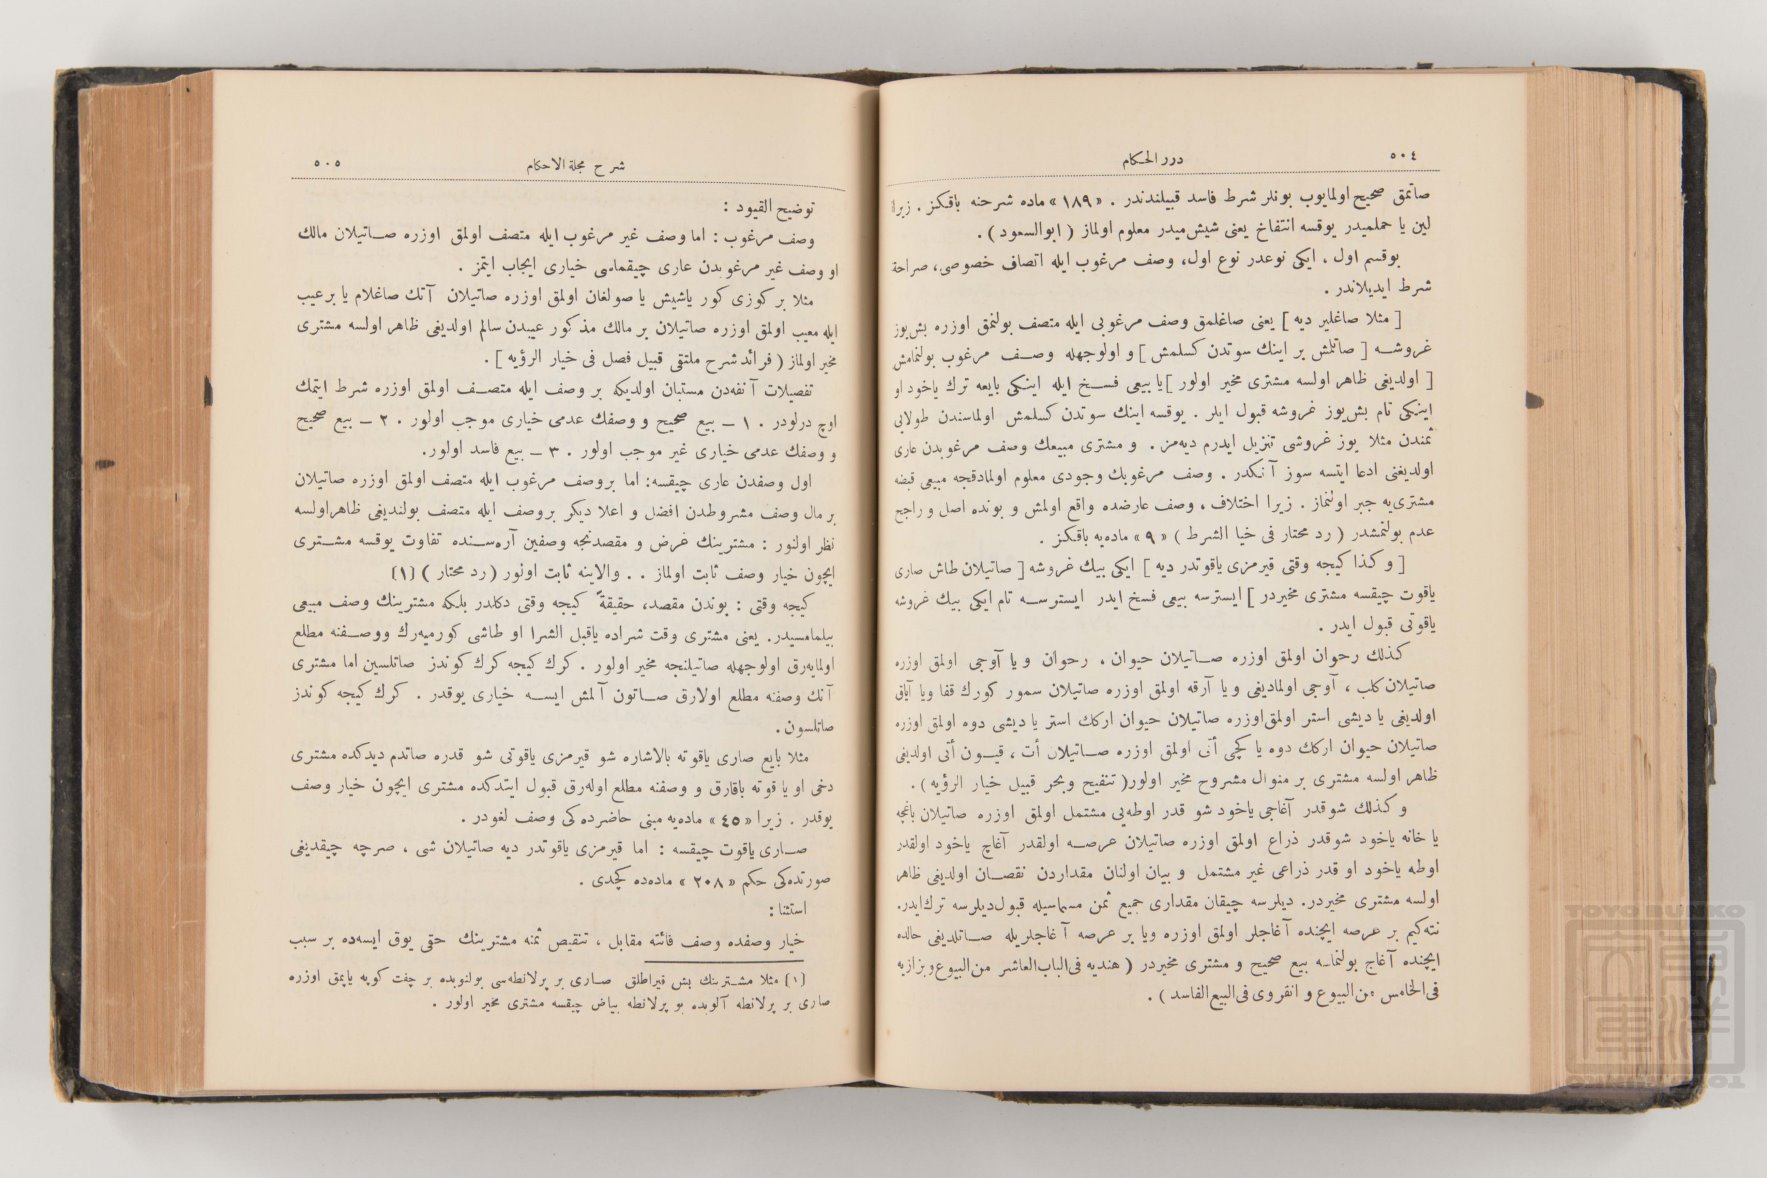 ٥٠٤
درر الحكام
صاتمق صحيح اولمايوب بونلر شرط فاسد قبيلندندر . «١٨٩» ماده شرحنه باقكز . زيرا
لين يا حملميدر يوقسه انتفاخ يعنى شيش ميدر معلوم اولماز ( ابوالسعود ) .
بوقسم اول ، ايكى نوعدر نوع اول، وصف مرغوب ايله اتصاف خصوصى، صراحة
شرط ايديلاندر .
[ مثلا صاغلير ديه ] يعنى صاغلمق وصف مرغوبى ايله متصف بولنمق اوزره بش يوز
غروشـه [ صاتلش بر اينك سوتدن كسلمش ] و اولوجهله وصـف مرغوب بولنمامش
[ اولديغى ظاهر اولسه مشترى مخير اولور ] يا بيعى فسـخ ايله اينكى بايعه ترك ياخود او
اينكى تام بش يوز غروشه قبول ايلر . يوقسه اينك سوتدن كسلمش اولماسندن طولايى
ثمندن مثلا يوز غروشى تنزيل ايدرم ديه مز . و مشترى مبيعك وصف مرغوبدن عارى
اولديغنى ادعا ايتسه سوز آنكدر . وصف مرغوبك وجودى معلوم اولمادقجه مبيعى قبضه
مشترى يه جبر اولنماز . زيرا اختلاف ، وصف عارضده واقع اولمش و بونده اصل و راجح
عدم بولنمشدر ( رد محتار فى خيا الشرط ) «٩» ماده يه باقكز .
[ و كذا كيجه وقتى قيرمزى ياقوتدر ديه ] ايكى بيك غروشه [ صاتيلان طاش صارى
ياقوت چيقسه مشترى مخيردر ] ايسترسه بيعى فسخ ايدر ايسترسـه تام ايكى بيك غروشه
ياقوتى قبول ايدر .
كذلك رحوان اولمق اوزره صـاتيلان حيوان ، رحوان و يا آوجى اولمق اوزره
صاتيلان كلب ، آوجى اولماديغى و يا آرقه اولمق اوزره صاتيلان سمور كورك قفا ويا آياق
اولديغى يا ديشى استر اولمق اوزره صاتيلان حيوان اركك استر يا ديشى دوه اولمق اوزره
صاتيلان حيوان اركك دوه يا كچى أتى اولمق اوزره صـاتيلان أت ، قيـون أتى اولديغى
ظاهر اولسه مشترى بر منوال مشروح مخير اولور ( تنقيح وبحر قبيل خيار الرؤيه ) .
و كذلك شو قدر آغاجى ياخود شو قدر اوطه يى مشتمل اولمق اوزره صاتيلان باغچه
يا خانه ياخود شوقدر ذراع اولمق اوزره صاتيلان عرصـه اولقدر آغاچ ياخود اولقدر
اوطه ياخود او قدر ذراعى غير مشتمل و بيان اولنان مقداردن نقصـان اولديغى ظاهر
اولسه مشترى مخيردر. ديلرسه چيقان مقدارى جميع ثمن مسماسيله قبول ديلرسه ترك ايدر.
نته كيم بر عرصه ايچنده آغاجلر اولمق اوزره ويا بر عرصه آغاجلريله صـاتلديغى حالده
ايچنده آغاج بولنماسه بيع صحيح و مشترى مخيردر ( هنديه فى الباب العاشر من البيوع و بزازيه
فى الخامس من البيوع و انقروى فى البيع الفاسد ) .
شرح مجلة الاحكام
٥٠٥
توضيح القيود :
وصف مرغوب : اما وصف غير مرغوب ايله متصف اولمق اوزره صـاتيلان مالك
او وصف غير مرغوبدن عارى چيقماسى خيارى ايجاب ايتمز .
مثلا بر كوزى كور ياشيش يا صولغان اولمق اوزره صاتيلان آتك صاغلام يا بر عيب
ايله معيب اولمق اوزره صاتيلان بر مالك مذكور عيبدن سالم اولديغى ظاهر اولسه مشترى
مخير اولماز ( فرائد شرح ملتقى قبيل فصل فى خيار الرؤيه ] .
تفصيلات آنفه دن مستبان اولديكه بر وصف ايله متصـف اولمق اوزره شرط ايتمك
اوچ درلودر . ١ ـ بيع صحيح و وصفك عدمى خيارى موجب اولور . ٢ ـ بيع صحيح
و وصفك عدمى خيارى غير موجب اولور . ٣ ـ بيع فاسد اولور.
اول وصفدن عارى چيقسه: اما بر وصف مرغوب ايله متصف اولمق اوزره صاتيلان
بر مال وصف مشروطدن افضل و اعلا ديكر بروصف ايله متصف بولنديغى ظاهر اولسه
نظر اولنور : مشترينك غرض و مقصدنجه وصفين آره سـنده تفاوت يوقسه مشـترى
ايچون خيار وصف ثابت اولماز . . والاينه ثابت اونور ( رد محتار ) (١)
كيجه وقتى : بوندن مقصد، حقيقةً كيجه وقتى دكلدر بلكه مشترينك وصف مبيعى
بيلمامسيدر. يعنى مشترى وقت شراده ياقبل الشرا او طاشى كورميه رك ووصـفنه مطلع
اولمايه رق اولوجهله صاتيلنجه مخير اولور . كرك كيجه كرك كوندز صاتلسين اما مشترى
آنك وصفنه مطلع اولارق صـاتون آلمش ايسـه خيارى يوقدر . كرك كيجه كوندز
صاتلسون .
مثلا بايع صارى ياقوته بالاشاره شو قيرمزى ياقوتى شو قدره صاتدم ديدكده مشترى
دخى او ياقوته باقارق و وصفنه مطلع اوله رق قبول ايتدكده مشترى ايچون خيار وصف
يوقدر . زيرا «٤٥» ماده يه مبنى حاضرده كى وصف لغودر .
صـارى ياقوت چيقسه : اما قيرمزى ياقوتدر ديه صاتيلان شى ، صرچه چيقديغى
صورتده كى حكم «٢٠٨» ماده ده كچدى .
استثنا :
خيار وصفده وصف فائته مقابل ، تنقيص ثمنه مشترينك حقى يوق ايسه ده بر سبب
(١) مثلا مشـترينك بش قيراطلق صـارى بر پرلانطه سى بولنوبده بر چفت كوپه ياپمق اوزره
صارى بر پرلانطه آلوبده بو پرلانطه بياض چيقسه مشترى مخير اولور .
TOYO BUNKO